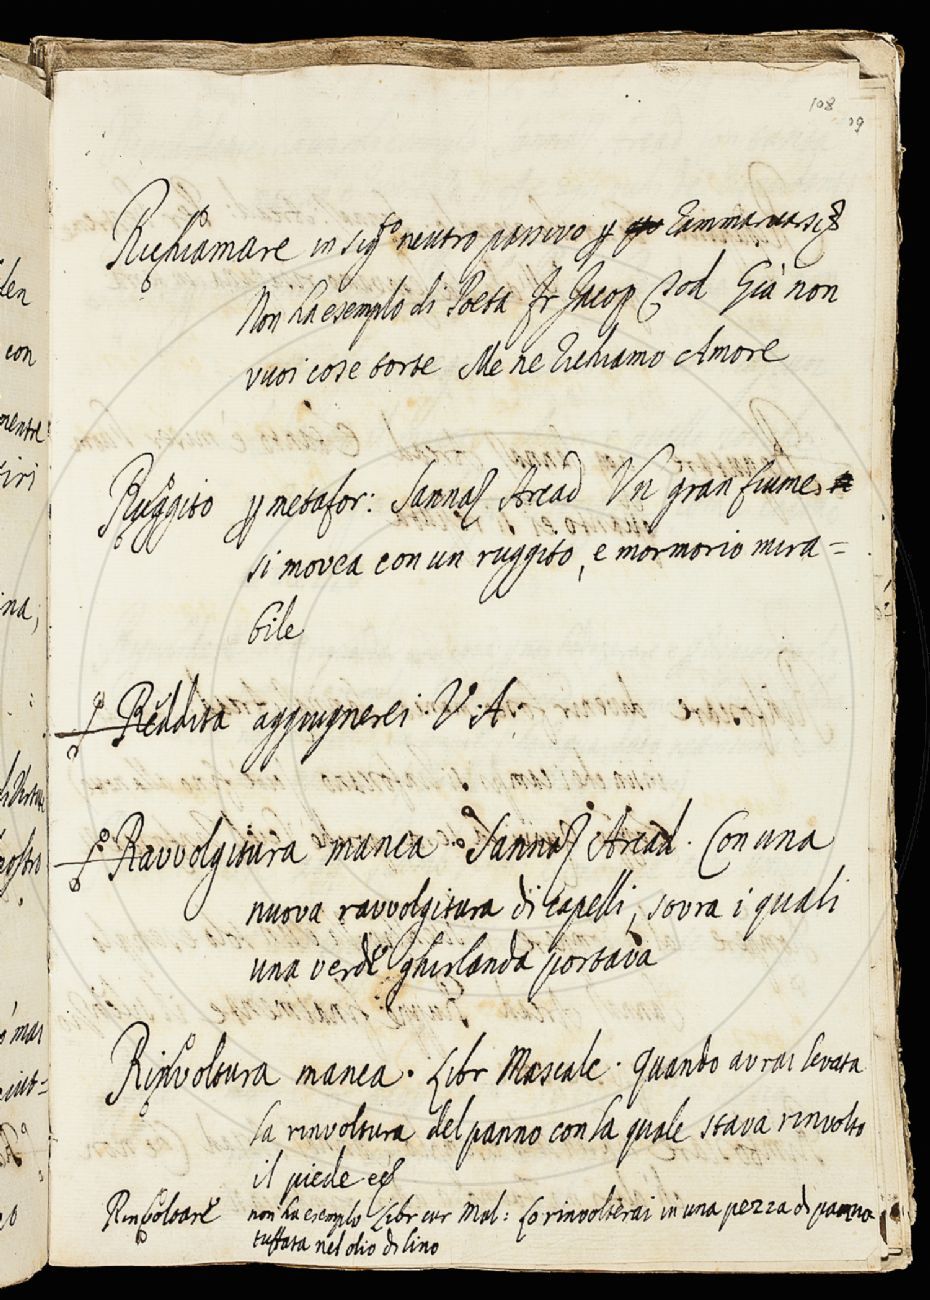 108
09
Richiamare in sig.to neutro passivo p Rammaricarsi
Non ha esemplo di Poeta Fr Jacop Tod Già non
vuoi cose torte Me ne richiamo Amore
Ruggito p metafor: Sannaz Arcad Un gran fiume
si movea con un ruggito, e mormorio mira=
bile
Reddita aggiugnerei V A
Ravvolgitura manca. Sannaz Arcad. Con una
nuova ravvolgitura di capelli, sovra i quali
una verde ghirlanda portava
Rinvoltura manca. Libr Mascalc. Quando avrai levata
la rinvoltura del panno con la quale stava rinvolto
il piede ec
Rinvoltare non ha esemplo Libr cur Mal: Lo rinvolterai in una pezza di panno
tuffata nel olio di lino
den
con
mente
tiri
ina,
nostro
mai